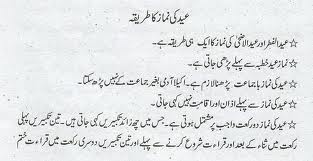 عید کی نماز کا طریقہ
☆ عیدالفطر اور عیدالاضحیٰ کی نماز کا ایک ہی طریقہ ہے۔
☆ نمازِ عید خطبہ سے پہلے پڑھی جاتی ہے۔
☆ عید کی نماز باجماعت پڑھنا لازم ہے۔ اکیلا آدمی بغیر جماعت کے نہیں پڑھ سکتا۔
☆ عید کی نماز سے پہلے اذان اور اقامت نہیں کہی جاتی۔
☆ عید کی نماز دو رکعت واجب پر مشتمل ہوتی ہے۔ جس میں چھ زائد تکبیریں کہی جاتی ہیں۔ تین تکبیریں پہلی
رکعت میں ثناء کے بعد اور قراءت شروع کرنے سے پہلے اور تین تکبیریں دوسری رکعت میں قراءت ختم